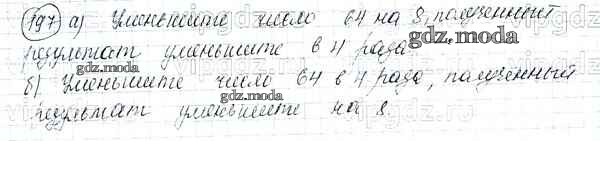 197 а) Уменьшите число 64 на 8, полученный
результат уменьшите в 4 раза.
gdz.moda
gdz.moda
б) Уменьшите число 64 в 4 раза, полученный
gdz.moda
результат уменьшите на 8.
gdz.moda